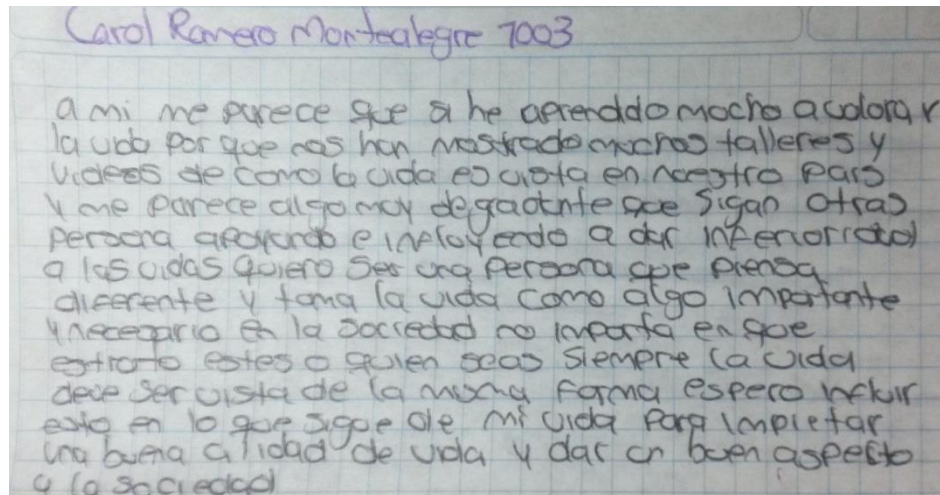 Carol Romero Montealegre 1003
a mi me parece que si he aprenddo mocho a valorar
la vida por que nos han mostrado muchos talleres y
videos de como la vida es vista en nuestro pais
y me parece algo muy degradante que sigan otras
persona apoyando e influyendo a dar inferiorridad
a las vidas quiero ser una persona que piensa
diferente y toma la vida como algo importante
y necesario en la sociedad no importa en que
estrato estes o quien seas siempre la vida
debe ser vista de la misma forma espero influir
esto en lo que sigue de mi vida para
una buena calidad de vida y dar un buen aspecto
a la sociedad